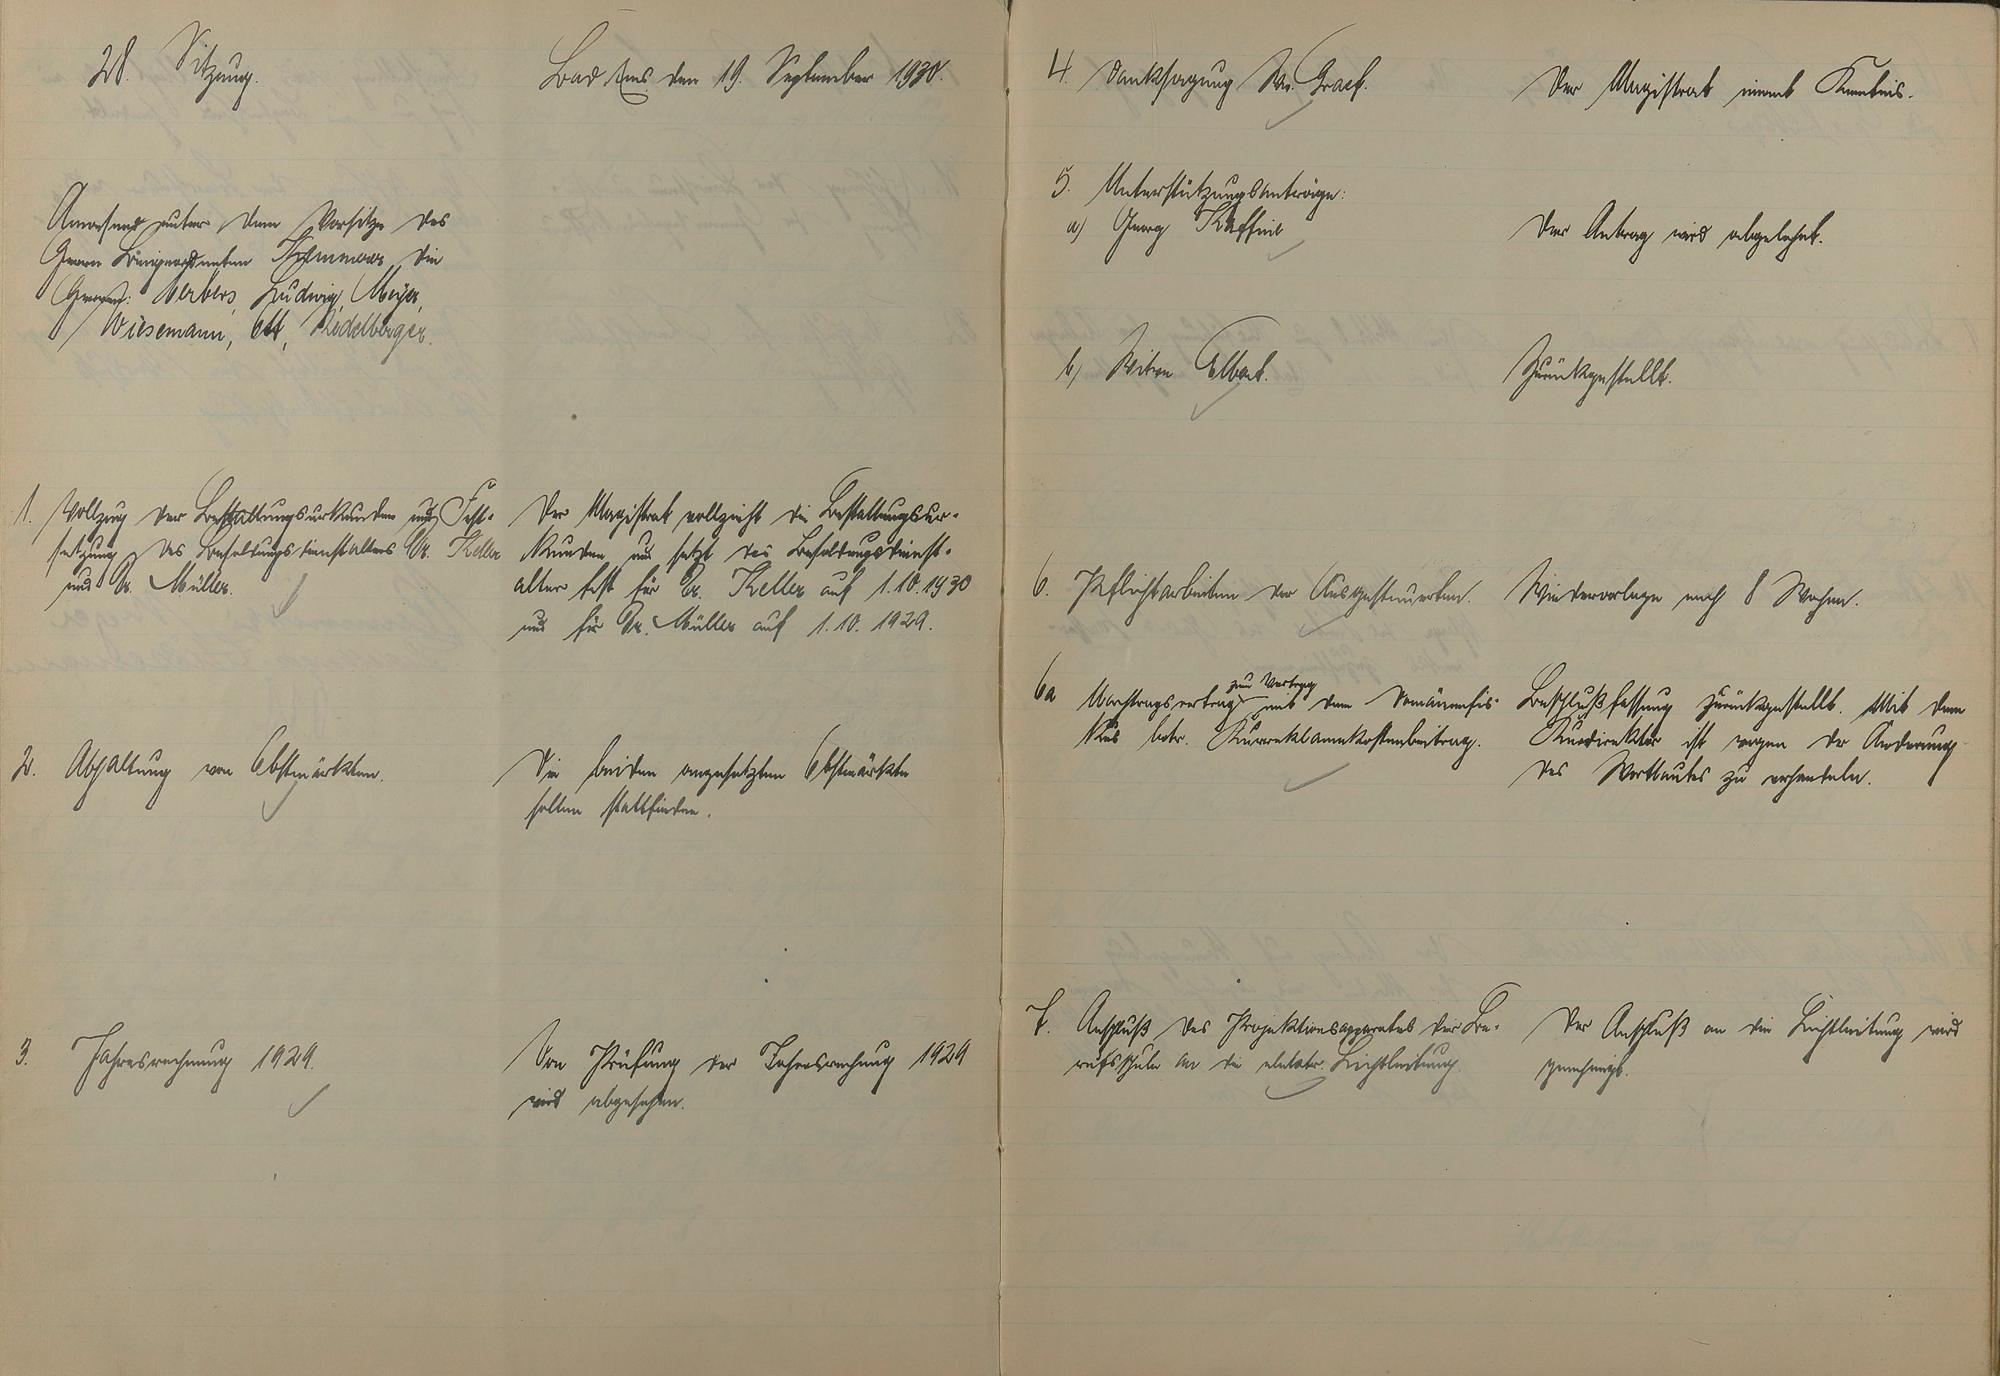 28. Sitzung.
Bad Ems den 19. September 1930.
Anwesend unter dem Vorsitze des
Herrn Beigeordneten die
Herren: Herbers, Ludwig, Meyer,
Wiesemann, Ott,
1. Vollzug der Bestallungsurkunden und Fest-
setzung des Besoldungsdienstalters Dr. Keller
und Dr. Müller.
Der Magistrat vollzieht die Bestallungsur-
kunden und setzt das Besoldungsdienst-
alter fest für Dr. Keller auf 1.10.1930
und für Dr. Müller auf 1.10.1929.
2. Abhaltung von Obstmärkten.
Die beiden angesetzten Obstmärkte
sollen stattfinden.
3. Jahresrechnung 1929.
Von Prüfung der Jahresrechnung 1929
wird abgesehen.
4. Danksagung Graef.
Der Magistrat nimmt Kenntnis.
5. Unterstützungsanträge:
a) Georg
Der Antrag wird abgelehnt.
b) Witwe Elbert.
Zurückgestellt.
6. Pflichtarbeiten der Ausgesteuerten.
Wiedervorlage nach 8 Wochen.
6a Nachtragsvertrag zum Vertrag mit dem Domänenfis-
kus betr. Kurreklamekostenbeitrag.
Beschlußfassung zurückgestellt. Mit dem
Kurdirektor ist wegen der Änderung
des Wortlautes zu verhandeln.
7. Anschluß des Projektionsapparates der Be-
rufsschule an die elektr. Lichtleitung.
Der Anschluß an die Lichtleitung wird
genehmigt.